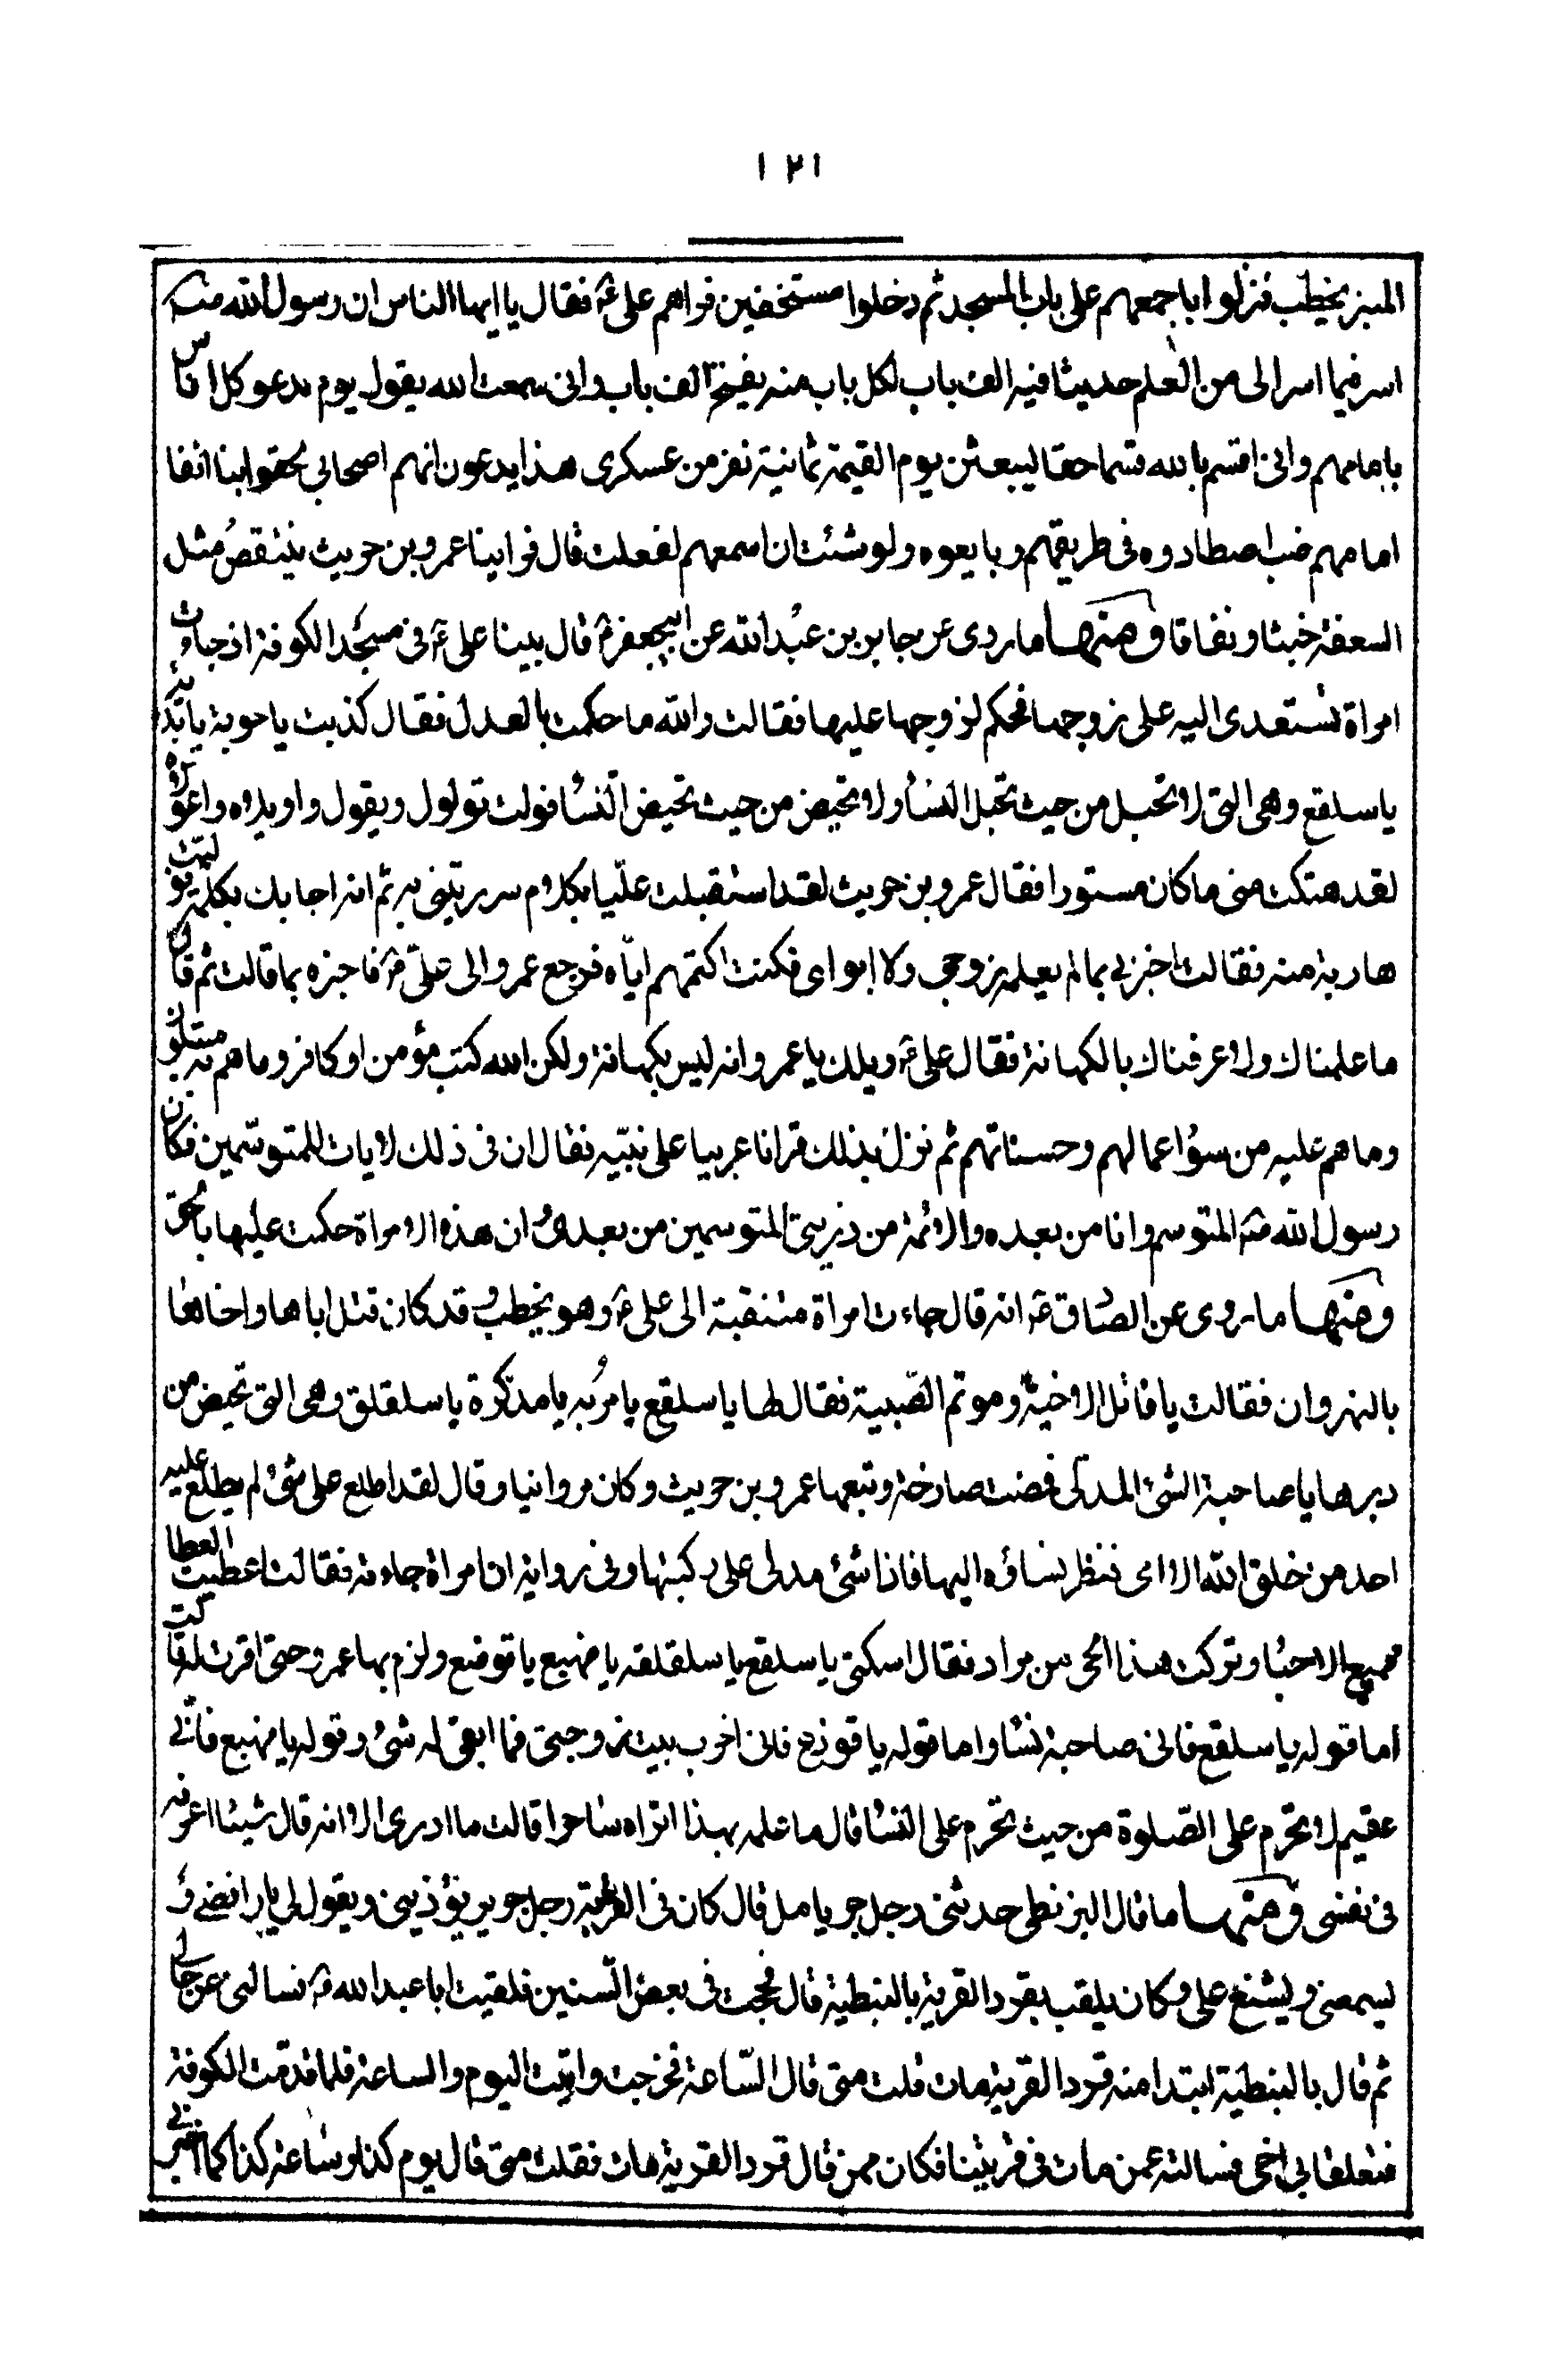 ١٢١
المنبر يخطب فنزلوا باجمعهم على باب المسجد ثم دخلوا مستخفين فراهم على ع فقال يا ايها الناس ان رسول الله ص
اسر فيما اسر الى من العلم حديثا فيه الف باب لكل باب منه يفتح الف باب وانى سمعت الله يقول يوم ندعو كل اناس
بامامهم وانى اقسم بالله قسما حقا ليبعثن يوم القيمة ثمانية نفر من عسكرى هذا يدعون انهم اصحابى لحقوا بنا انفا
امامهم ضب اصطادوه فى طريقهم وبايعوه ولو شئت ان اسمعهم لفعلت قال فراينا عمرو بن حريث ينتقص مثل
السعفة خبثا ونفاقا ومنها ما روى عن جابر بن عبد الله عن ابيجعفر ع قال بينا على ع فى مسجد الكوفة اذ جاءت
امراة تستعدى اليه على زوجها فحكم لزوجها عليها فقالت والله ما حكمت بالعدل فقال كذبت يا حوبة يا بذية
يا سلقع وهى التى لا تحبل من حيث تحبل النسا ولا تحيض من حيث تحيض النسا فولت تولول ويقول واويلاه واعوراه
لقد هتكت منى ما كان مستورا فقال عمرو بن حريث لقد استقبلت عليا بكلام سررتينى به ثم انه اجابك بكلمة توليت
هاربة منه فقالت اخبرنى بما لم يعلمه زوجى ولا ابواى فكنت اكتمهم اياه فرجع عمرو الى على ع فاخبره بما قالت ثم قال
ما علمناك ولا عرفناك بالكهانة فقال على ع ويلك يا عمرو انه ليس بكهانة ولكن الله كتب مؤمن او كافر وما هم به مبتلون
وما هم عليه من سوء اعمالهم وحسناتهم ثم نزل بذلك قرانا عربيا على نبيه فقال ان فى ذلك لايات للمتوسمين فكان
رسول الله ص المتوسم وانا من بعده والائمة من ذريتى المتوسمين من بعدى وان هذه الامراة حكمت عليها بالحق
ومنها ما روى عن الصادق ع انه قال جاءت امراة متنقبة الى على ع وهو يخطب وقد كان قتل اباها واخاها
بالنهروان فقالت يا قاتل الاخية وموتم الصبية فقال لها يا سلقع يا مربه يا مذكرة يا سلقلق وهى التى تحيض من
دبرها يا صاحبة الشئ المدلى فمضت صارخة وتبعها عمرو بن حريث وكان مروانيا وقال لقد اطلع على شئ لم يطلع عليه
احد من خلق الله الا امى فنظر نساؤه اليها فاذا شئ مدلى على ركبتها وفى رواية ان امراة جاءته فقالت اعطيت العطا
جميع الاحيا وتركت هذا الحى من مراد فقال اسكتى يا سلقع يا سلقلقه يا مهيع يا قوذع ولزم بها عمرو حتى اقرت له قالت
اما قوله يا سلقع فانى صاحبة نسا واما قوله يا قوذع فانى اخرب بيت زوجى فما ابقى له شئ وقوله يا مهيع فانى
عقيم لا تحرم على الصلوة من حيث تحرم على النسا قال ما علمه بهذا اتراه ساحرا قالت ما ادرى الا انه قال شيئا اعرفه
فى نفسى ومنها ما قال البزنطى حدثنى رجل جريا مل قال كان فى القرية رجل جوير يؤذينى ويقول لى يا رافضى و
يسمعنى ويشنع على وكان يلقب بقرد القرية بالنبطية قال فحججت فى بعض السنين فلقيت ابا عبد الله ع فسالنى عن حالى
ثم قال بالنبطية ابتدا منه قرد القرية مات قلت متى قال الساعة فخرجت واثبت اليوم والساعة فلما قدمت الكوفة
فتعلقا بى اخى فسالته عمن مات فى قريتنا فكان ممن قال قرد القرية مات فقلت متى قال يوم كذا وساعة كذا كما اخبرنى